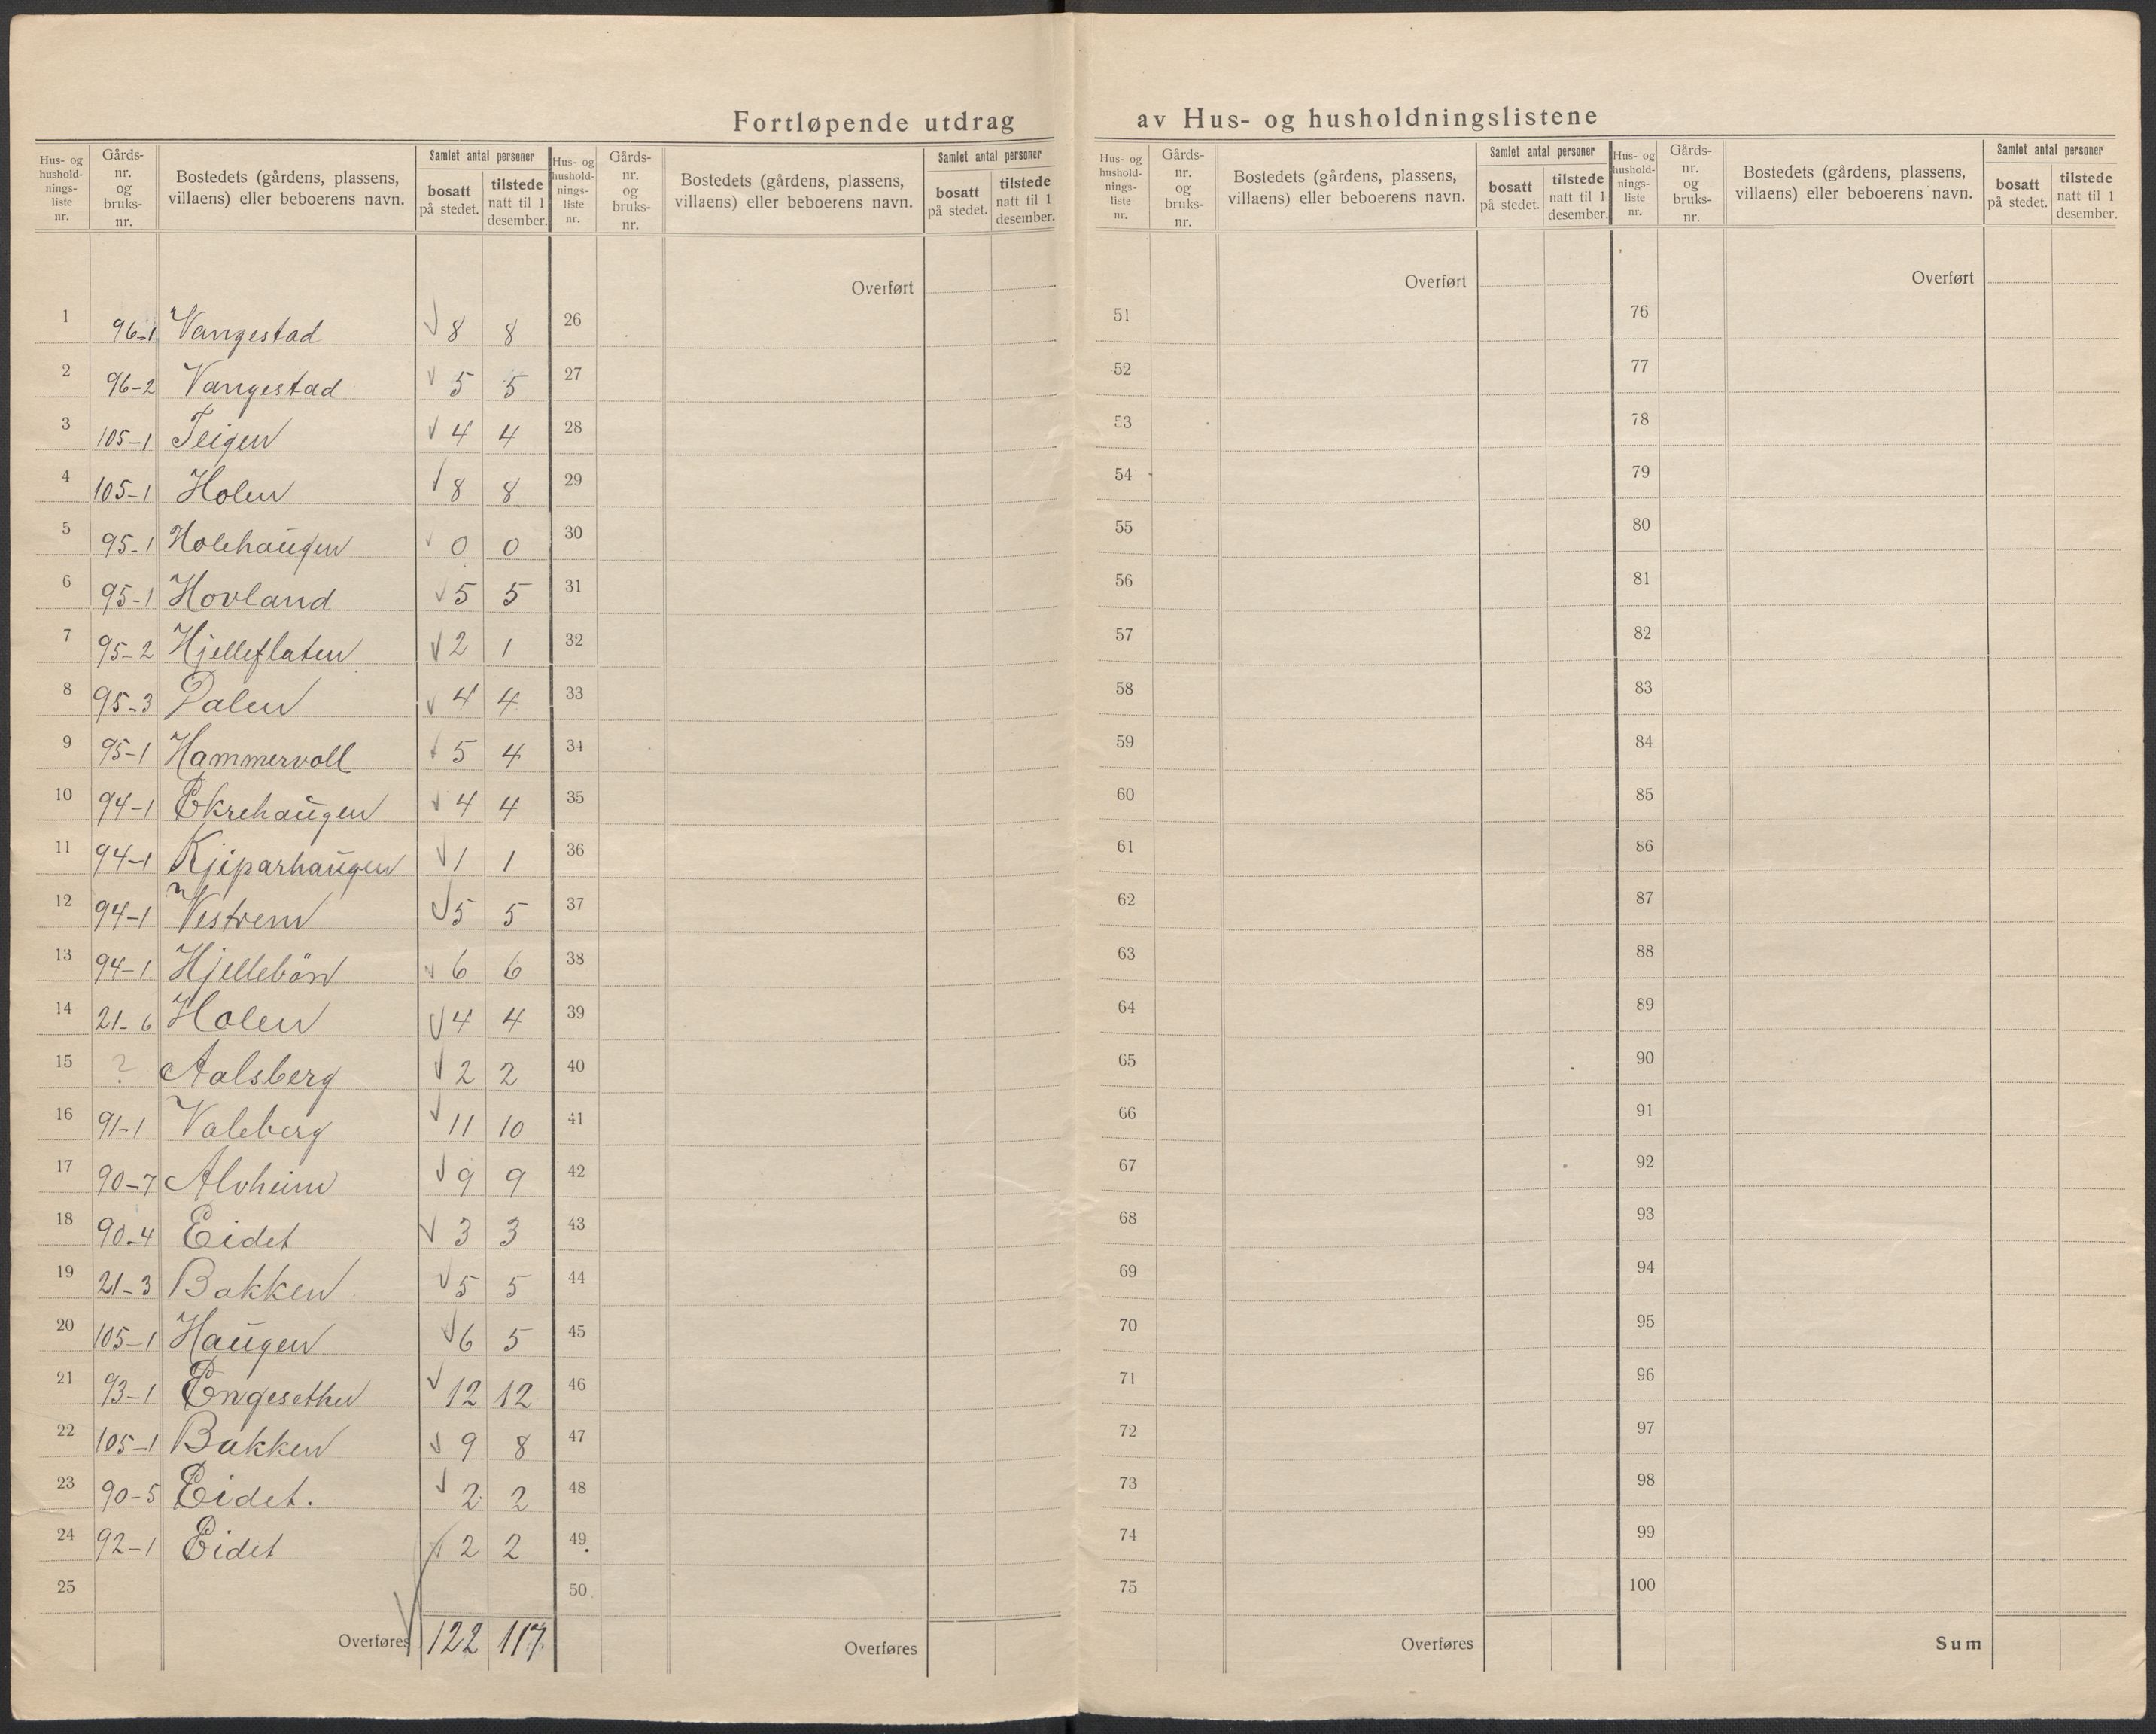 Fortløpende utdrag av Hus- og husholdningslistene
Hus- og hushold-nings-liste nr. | Gårds-nr. og bruks-nr. | Bostedets (gårdens, plassens, villaens) eller beboerens navn. | Samlet antal personer | bosatt på stedet. | tilstede natt til 1 desember.
Hus- og hushold-nings-liste nr. | Gårds-nr. og bruks-nr. | Bostedets (gårdens, plassens, villaens) eller beboerens navn. | Samlet antal personer | bosatt på stedet. | tilstede natt til 1 desember.
Hus- og hushold-nings-liste nr. | Gårds-nr. og bruks-nr. | Bostedets (gårdens, plassens, villaens) eller beboerens navn. | Samlet antal personer | bosatt på stedet. | tilstede natt til 1 desember.
Hus- og hushold-nings-liste nr. | Gårds-nr. og bruks-nr. | Bostedets (gårdens, plassens, villaens) eller beboerens navn. | Samlet antal personer | bosatt på stedet. | tilstede natt til 1 desember.
Overført Overført Overført
1 96-1 Vangestad √ 8 8 26 51 76
2 96-2 Vangestad √ 5 5 27 52 77
3 105-1 Teigen √ 4 4 28 53 78
4 105-1 Holen √ 8 8 29 54 79
5 95-1 Holehaugen √ 0 0 30 55 80
6 95-1 Hovland √ 5 5 31 56 81
7 95-2 Hjelleflaten √ 2 1 32 57 82
8 95-3 Dalen √ 4 4 33 58 83
9 95-1 Hammervoll √ 5 4 34 59 84
10 94-1 Ekrehaugen √ 4 4 35 60 85
11 94-1 Kjiparhaugen √ 1 1 36 61 86
12 94-1 Vestrem √ 5 5 37 62 87
13 94-1 Hjellebön √ 6 6 38 63 88
14 21-6 Holen √ 4 4 39 64 89
15 ? Aalsberg √ 2 2 40 65 90
16 91-1 Valeberg √ 11 10 41 66 91
17 90-7 Alvheim √ 9 9 42 67 92
18 90-4 Eidet √ 3 3 43 68 93
19 21-3 Bakken √ 5 5 44 69 94
20 105-1 Haugen √ 6 5 45 70 95
21 93-1 Engesether √ 12 12 46 71 96
22 105-1 Bakken √ 9 8 47 72 97
23 90-5 Eidet. √ 2 2 48 73 98
24 92-1 Eidet √ 2 2 49 74 99
25 50 75 100
Overføres √ 122 117 Overføres Overføres Sum